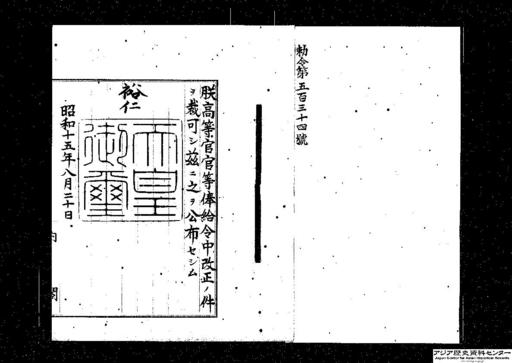 勅令第五百三十四號
朕高等官官等俸給令中改正ノ件
ヲ裁可シ茲ニ之ヲ公布セシム
裕仁
天皇
御璽
昭和十五年八月二十日
内閣
アジア歴史資料センター
Japan Center for Asian Historical Records